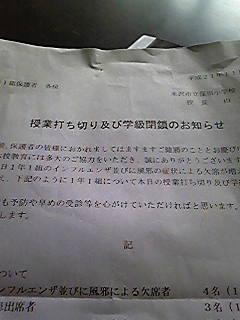 1組保護者 各位
平成21年11
米沢市立窪田小学校
校長
授業打ち切り及び学級閉鎖のお知らせ
保護者の皆様におかれましてはますますご健勝のこととお慶び
本校教育には多大のご協力をいただき、誠にありがとうございます
日1年1組のインフルエンザ並びに風邪の症状による欠席が増
え、下記のように1年1組について本日の授業打ち切り及び学
も予防や早めの受診等を心がけていただければと思います。
します。
記
ついて
ンフルエンザ並びに風邪による欠席者 4名(1
席出席者 3名(1